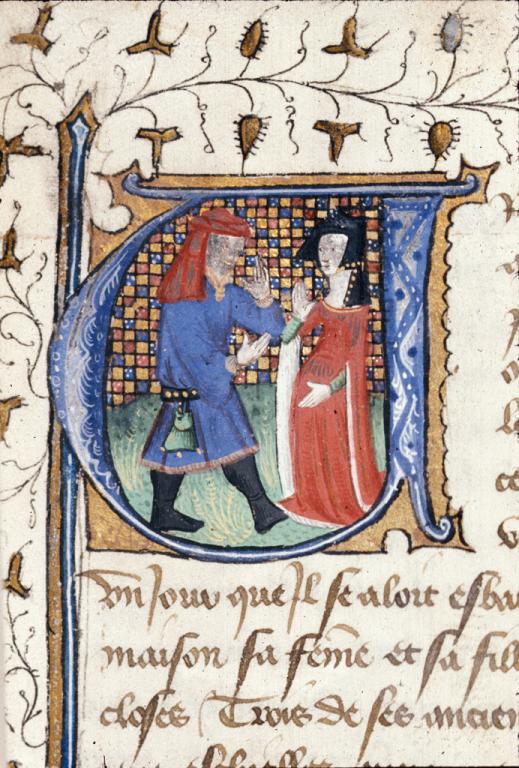 Vn Jour que Jl se aloit esba
maison sa feme et sa fill
closes Trois de ses ancien